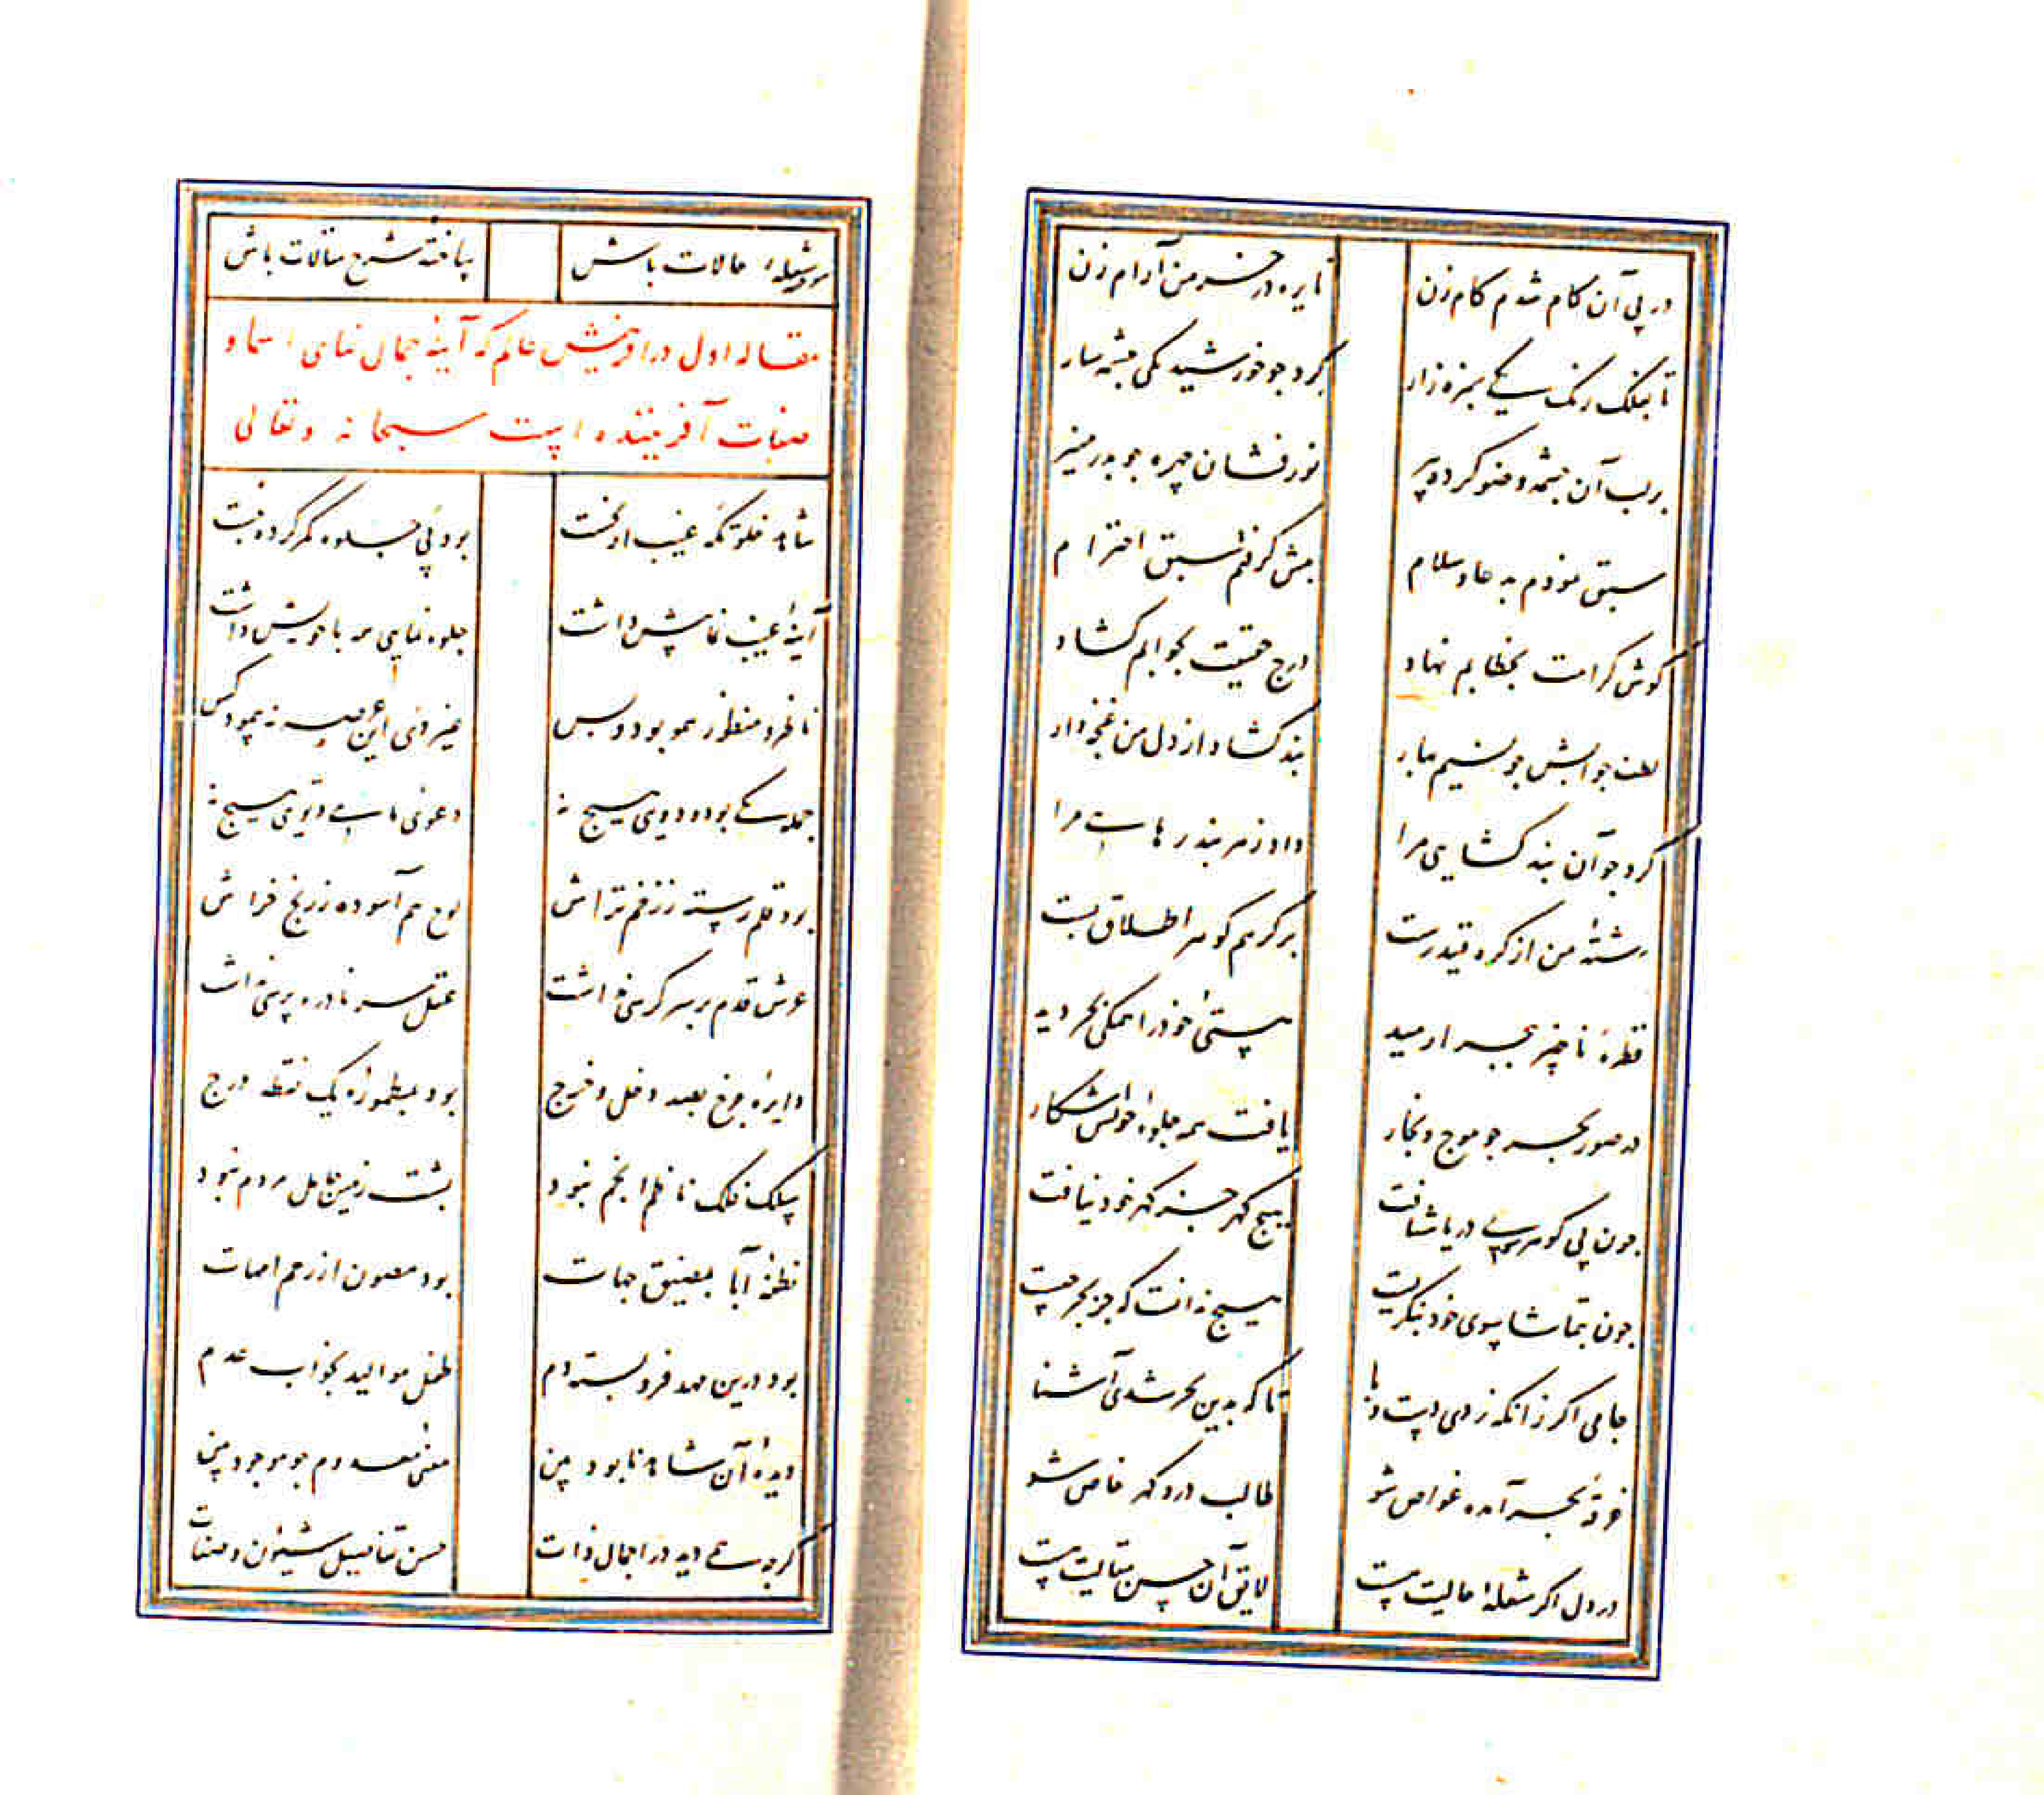 در پی آن کام شدم کام زن نایره در خرمن آرام زن
تا بفلک رنک یکی سبزه زار کرد چو خورشید یکی چشمه سار
بر لب آن چشمه وضو کرده پیر نور فشان چهره چو بدر منیر
سبق نمودم به دعا و سلام پیش گرفتم سبق احترام
کوش کرامت بخطابم نهاد درج حقیقت بجوابم کشاد
لطف جوابش چو نسیم بهار بند کشاد از دل من غنچه وار
کرد چو آن بند کشایی مرا داد ز هر بند رهایی مرا
رشتهٔ من از کره قید رست بر کرهم کوهر اطلاق بست
قطرهٔ ناچیز ببحر ارمید هستی خود را همکی بحر دید
در صور بحر چو موج و بخار یافت همه جلوهٔ خود آشکار
چون پی کوهر سوی دریا شتافت هیچ کهر جز کهر خود نیافت
چون بتماشا سوی خود بنکریست هیچ ندانست که جز بحر چیست
جامی اکر زانکه زدی دست و پا تا که بدین بحر شدی آشنا
غرقهٔ بحر آمده غواص شو طالب در و کهر خاص شو
در دل اکر شعلهٔ حالیت هست لایق آن حسن مقالیت هست
سوخته شعلهٔ حالات باش ساخته شرح مقالات باش
مقالهٔ اول در آفرینش عالم که آینهٔ جمال نمای اسما و
صفات آفریننده است سبحانه و تعالی
شاهد خلوتکه غیب از نخست بود پی جلوه کمر کرده چست
آینهٔ غیب نما پیش داشت جلوه نمایی همه با خویش داشت
ناظر و منظور همو بود و بس غیر وی این عرصه نپیمود کس
جمله یکی بود و دویی هیچ نه دعوی مایی و تویی هیچ نه
بود قلم رسته ز زخم تراش لوح هم آسوده ز رنج خراش
عرش قدم بر سر کرسی نداشت عقل سر نادره پرسی نداشت
دایرهٔ چرخ بصد دخل و خرج بود بمطمورهٔ یک نقطه درج
سلک فلک ناظم انجم نبود پشت زمین حامل مردم نبود
نطفهٔ آبا بمضیق جهات بود مصون از رحم امهات
بود درین مهد فرو بسته دم طفل موالید بخواب عدم
دیدهٔ آن شاهد نابود بین معنی معدوم چو موجود بین
کرچه همی دید در اجمال ذات حسن تفاصیل شئون و صفات